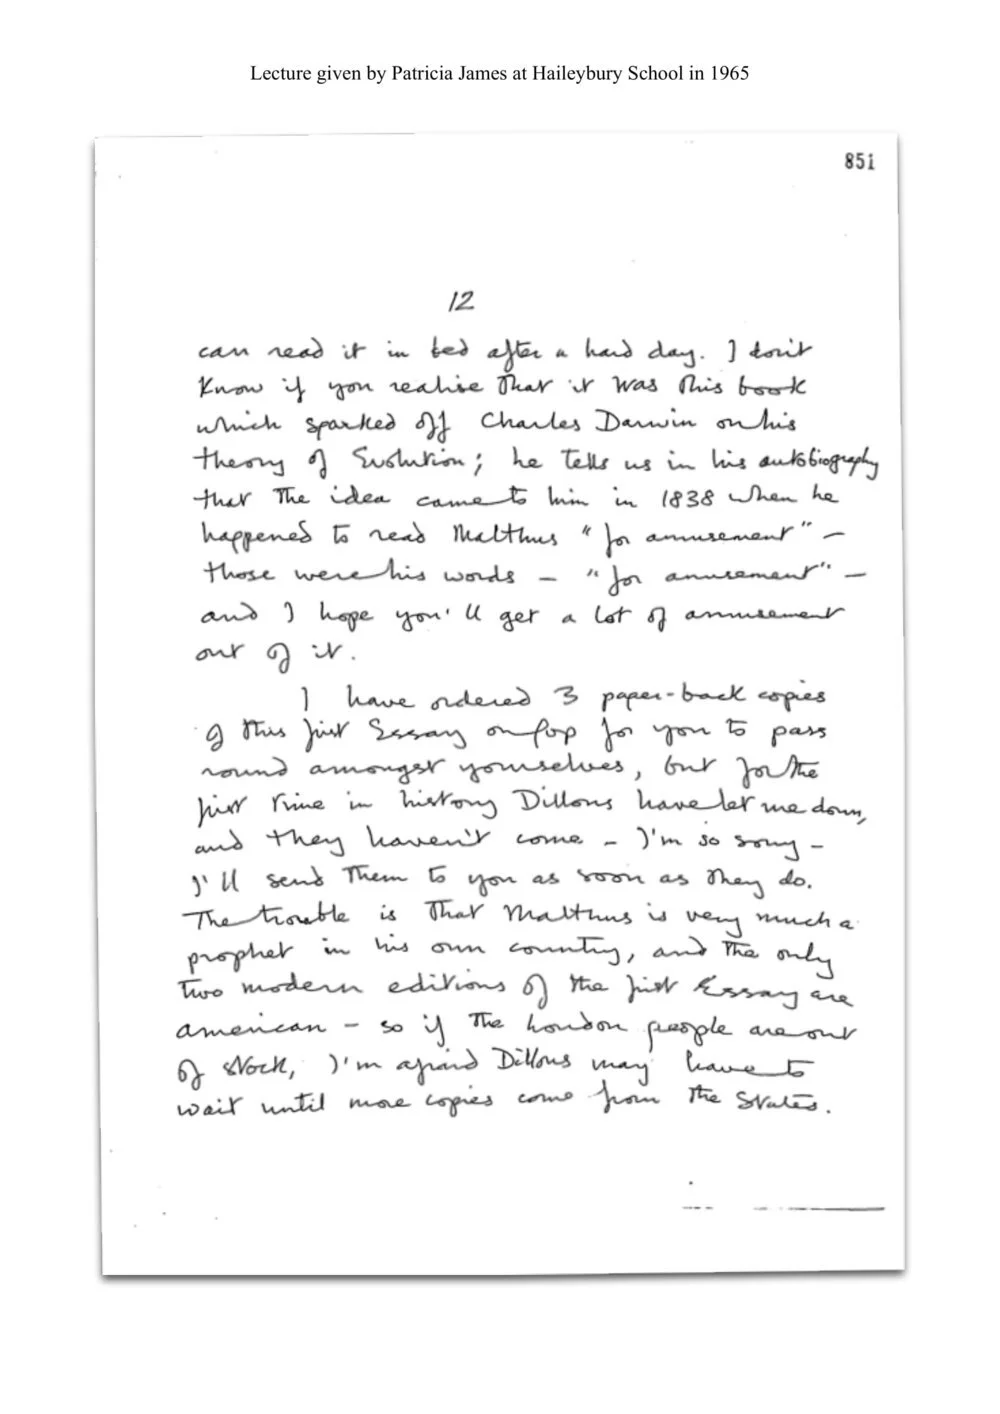 Lecture given by Patricia James at Haileybury School in 1965
851
12
can read it in bed after a hard day. I don't
know if you realise that it was this book
which sparked off Charles Darwin on his
theory of Evolution; he tells us in his autobiography
that the idea came to him in 1838 when he
happened to read Malthus "for amusement" –
those were his words – "for amusement" –
and I hope you'll get a lot of amusement
out of it.
I have ordered 3 paper-back copies
of this first Essay on Pop for you to pass
round amongst yourselves, but for the
first time in history Dillons have let me down,
and they haven't come – I'm so sorry –
I'll send them to you as soon as they do.
The trouble is that Malthus is very much a
prophet in his own country, and the only
two modern editions of the first Essay are
american – so if the London people are out
of stock, I'm afraid Dillons may have to
wait until more copies come from the States.